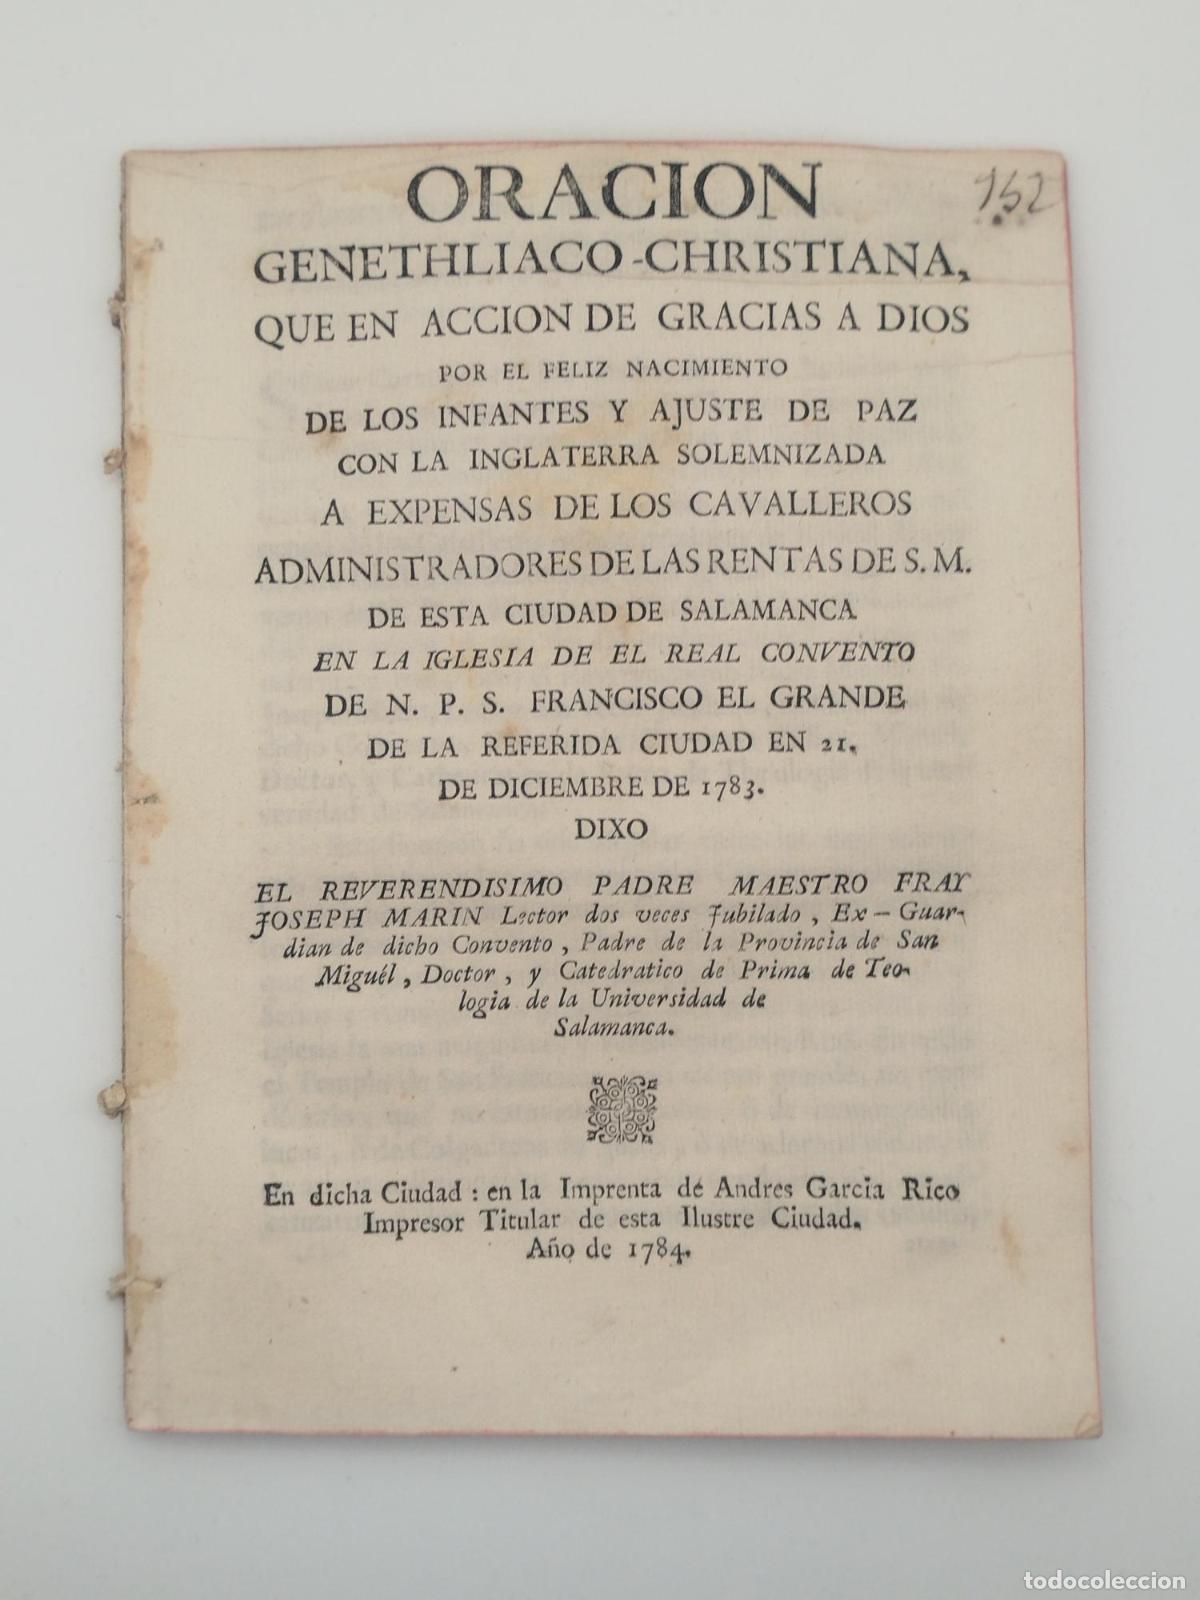 ORACION
152
GENETHLIACO-CHRISTIANA,
QUE EN ACCION DE GRACIAS A DIOS
POR EL FELIZ NACIMIENTO
DE LOS INFANTES Y AJUSTE DE PAZ
CON LA INGLATERRA SOLEMNIZADA
A EXPENSAS DE LOS CAVALLEROS
ADMINISTRADORES DE LAS RENTAS DE S. M.
DE ESTA CIUDAD DE SALAMANCA
EN LA IGLESIA DE EL REAL CONVENTO
DE N. P. S. FRANCISCO EL GRANDE
DE LA REFERIDA CIUDAD EN 21.
DE DICIEMBRE DE 1783.
DIXO
EL REVERENDISIMO PADRE MAESTRO FRAY
JOSEPH MARIN Lector dos veces Jubilado, Ex-Guar-
dian de dicho Convento, Padre de la Provincia de San
Miguél, Doctor, y Catedratico de Prima de Teo-
logia de la Universidad de
Salamanca.
En dicha Ciudad: en la Imprenta de Andres Garcia Rico
Impresor Titular de esta Ilustre Ciudad.
Año de 1784.
todocoleccion